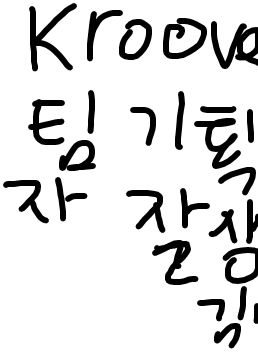 Kroove
팀 기획
자 잘생
김